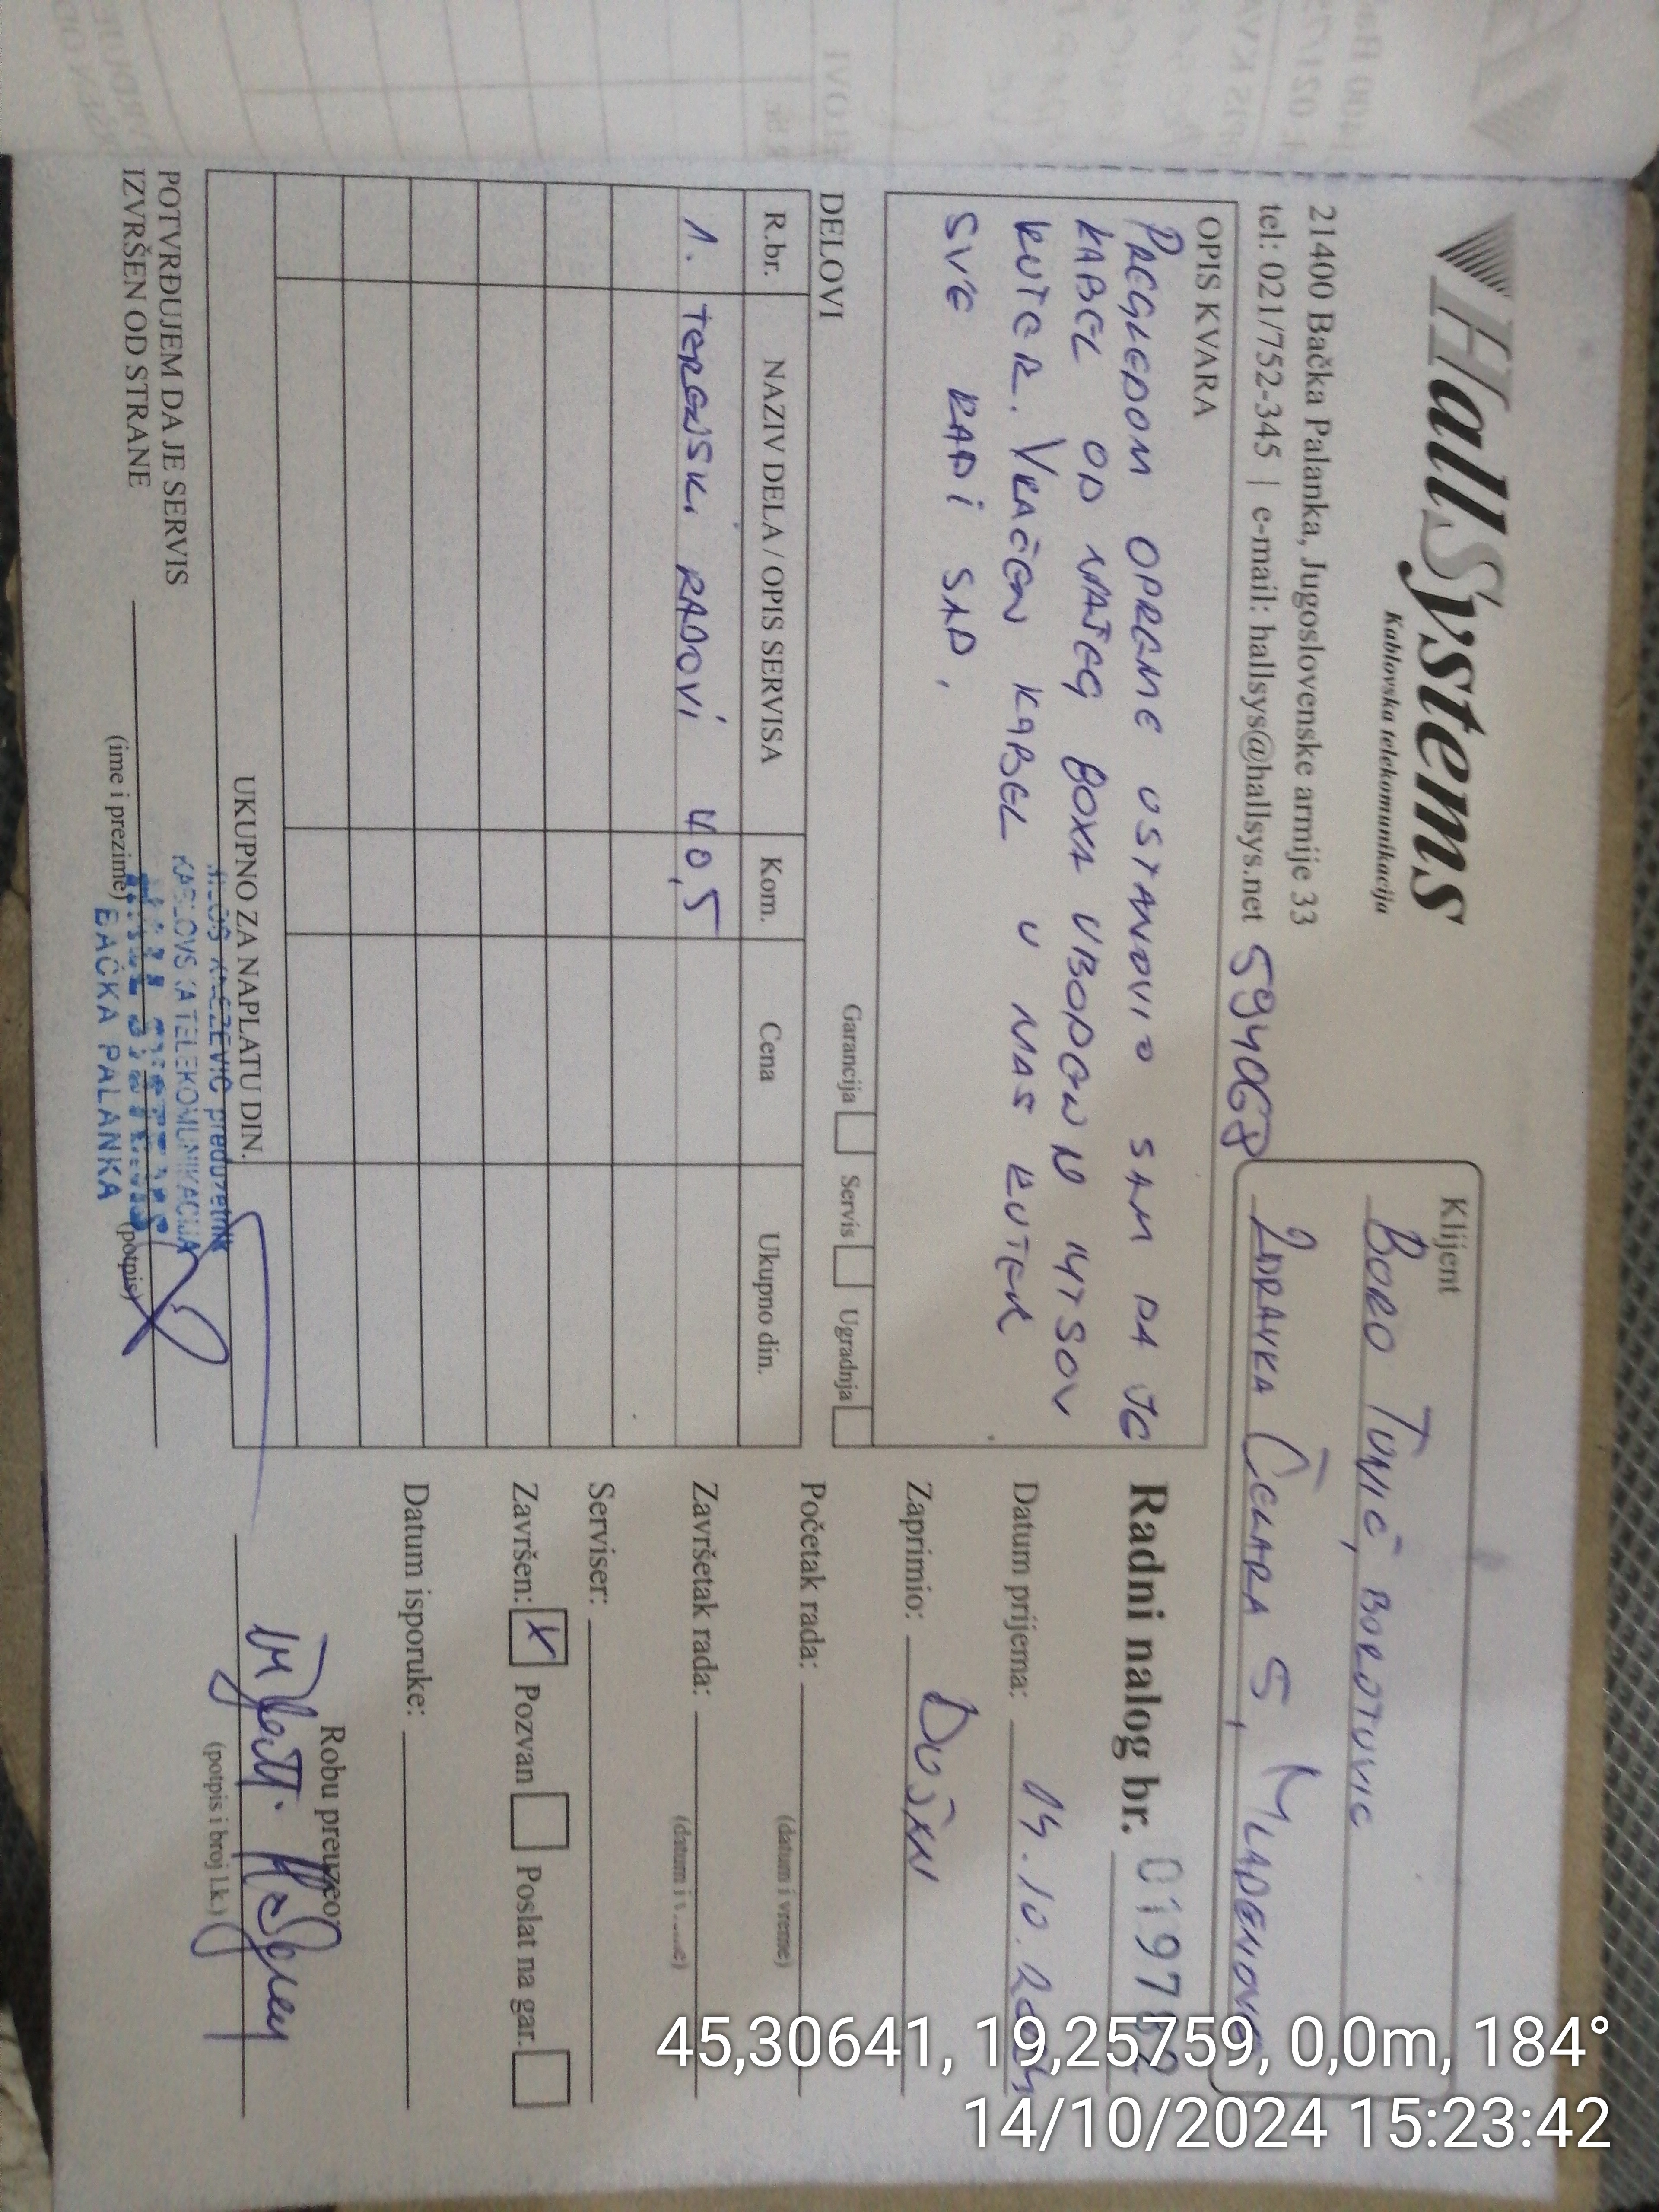 HallSystems
Kablovska telekomunikacija
21400 Bačka Palanka, Jugoslovenske armije 33
tel: 021/752-345 | e-mail: hallsys@hallsys.net
594068
Klijent
BORO TUNIĆ, BOROTUNIC
ZDRAVKA ČELARA 5, MLADENOVO
OPIS KVARA
PREGLEDOM OPREME USTANOVIO SAM DA JE
KABEL OD NAŠEG BOXA UBODEN U MTSOV
RUTER. VRAĆEN KABEL U NAŠ RUTER
SVE RADI SAD.
Radni nalog br.
Datum prijema: 14.10.2024
Zaprimio: DUŠAN
Početak rada:
(datum i vreme)
Završetak rada:
Serviser:
Završen: X Pozvan Poslat na gar.
Datum isporuke:
Robu preuzeo:
(potpis i broj l.k.)
DELOVI
Garancija Servis Ugradnja
R.br. NAZIV DELA / OPIS SERVISA Kom. Cena Ukupno din.
1. TERENSKI RADOVI 40,5
UKUPNO ZA NAPLATU DIN.
POTVRĐUJEM DA JE SERVIS
IZVRŠEN OD STRANE
(ime i prezime)
(potpis)
preduzetnik
KABLOVSKA TELEKOMUNIKACIJA
BAČKA PALANKA
45,30641, 19,25759, 0,0m, 184°
14/10/2024 15:23:42